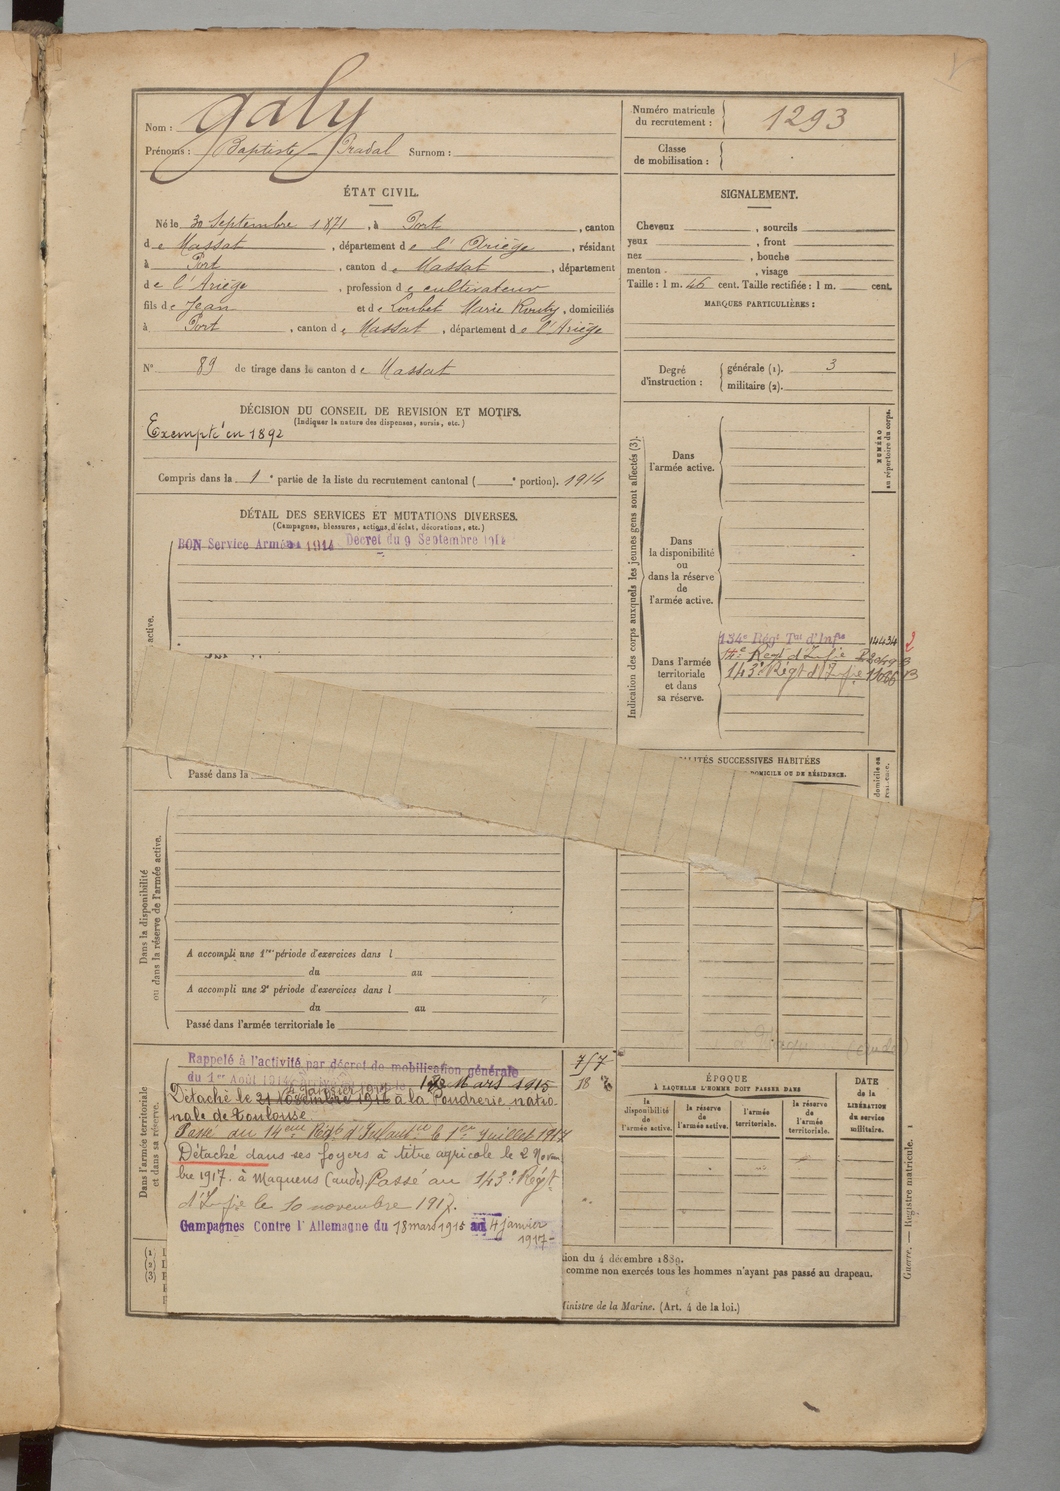 Nom : Galy
Prénoms : Baptiste Pradal Surnom :
Numéro matricule
du recrutement : 1293
Classe
de mobilisation :
ÉTAT CIVIL.
Né le 30 Septembre 1871, à Port, canton
de Massat, département de l'Ariège, résidant
à Port, canton de Massat, département
de l'Ariège, profession de cultivateur
fils de Jean et de Loubet Marie Rouby, domiciliés
à Port, canton de Massat, département de l'Ariège
N° 89 de tirage dans le canton de Massat
SIGNALEMENT.
Cheveux , sourcils
yeux , front
nez , bouche
menton , visage
Taille : 1 m. 46 cent. Taille rectifiée : 1 m. cent.
MARQUES PARTICULIÈRES :
Degré
d'instruction :
générale (1). 3
militaire (2).
DÉCISION DU CONSEIL DE REVISION ET MOTIFS.
(Indiquer la nature des dispenses, sursis, etc.)
Exempté en 1892
Compris dans la 1e partie de la liste du recrutement cantonal ( e portion). 1914
DÉTAIL DES SERVICES ET MUTATIONS DIVERSES.
(Campagnes, blessures, actions d'éclat, décorations, etc.)
BON Service Armé 1914 Décret du 9 Septembre 1914
active.
Passé dans la
Indication des corps auxquels les jeunes gens sont affectés (3).
NUMÉRO
au répertoire du corps.
Dans
l'armée active.
Dans
la disponibilité
ou
dans la réserve
de
l'armée active.
Dans l'armée
territoriale
et dans
sa réserve.
134e Régt Tal d'Infie 14434 2
14e Regt d'Infie
143e Régt d'Infie
ALITÉS SUCCESSIVES HABITÉES
DOMICILE OU DE RÉSIDENCE.
Dans la disponibilité
ou dans la réserve de l'armée active.
A accompli une 1re période d'exercices dans l
du au
A accompli une 2e période d'exercices dans l
du au
Passé dans l'armée territoriale le
Dans l'armée territoriale
et dans sa réserve.
Rappelé à l'activité par décret de mobilisation générale
du 1er Août 1914 18 Mars 1915
4 Janvier 1917
Détaché le 21 Novembre 1916 à la Poudrerie natio
nale de Toulouse
Passé au 14eme Régt d'Infanterie le 1er Juillet 1917
Détaché dans ses foyers à titre agricole le 2 Novem
bre 1917. à Maquens (aude) Passé au 143e Régt
d'Infie le 10 novembre 1917.
Campagnes Contre l'Allemagne du 18 mars 1915 au 4 janvier
1917-
7/7
18
ÉPOQUE
À LAQUELLE L'HOMME DOIT PASSER DANS
la
disponibilité
de
l'armée active.
la réserve
de
l'armée active.
l'armée
territoriale.
la réserve
de
l'armée
territoriale.
DATE
de la
LIBÉRATION
du service
militaire.
(1)
(2)
(3)
tion du 4 décembre 1889.
comme non exercés tous les hommes n'ayant pas passé au drapeau.
Ministre de la Marine. (Art. 4 de la loi.)
Guerre. — Registre matricule. 1